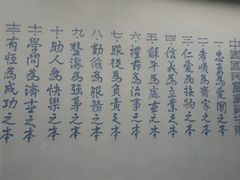 中國國民黨
一·忠勇為愛國之本
二·孝順為齊家之本
三·仁愛為接物之本
四·信義為立業之本
五·龢平為處世之本
六·禮節為治事之本
七·服從為負責之本
八·勤儉為服務之本
九·整潔為強身之本
十·助人為快樂之本
十一·學問為濟世之本
十二·有恆為成功之本